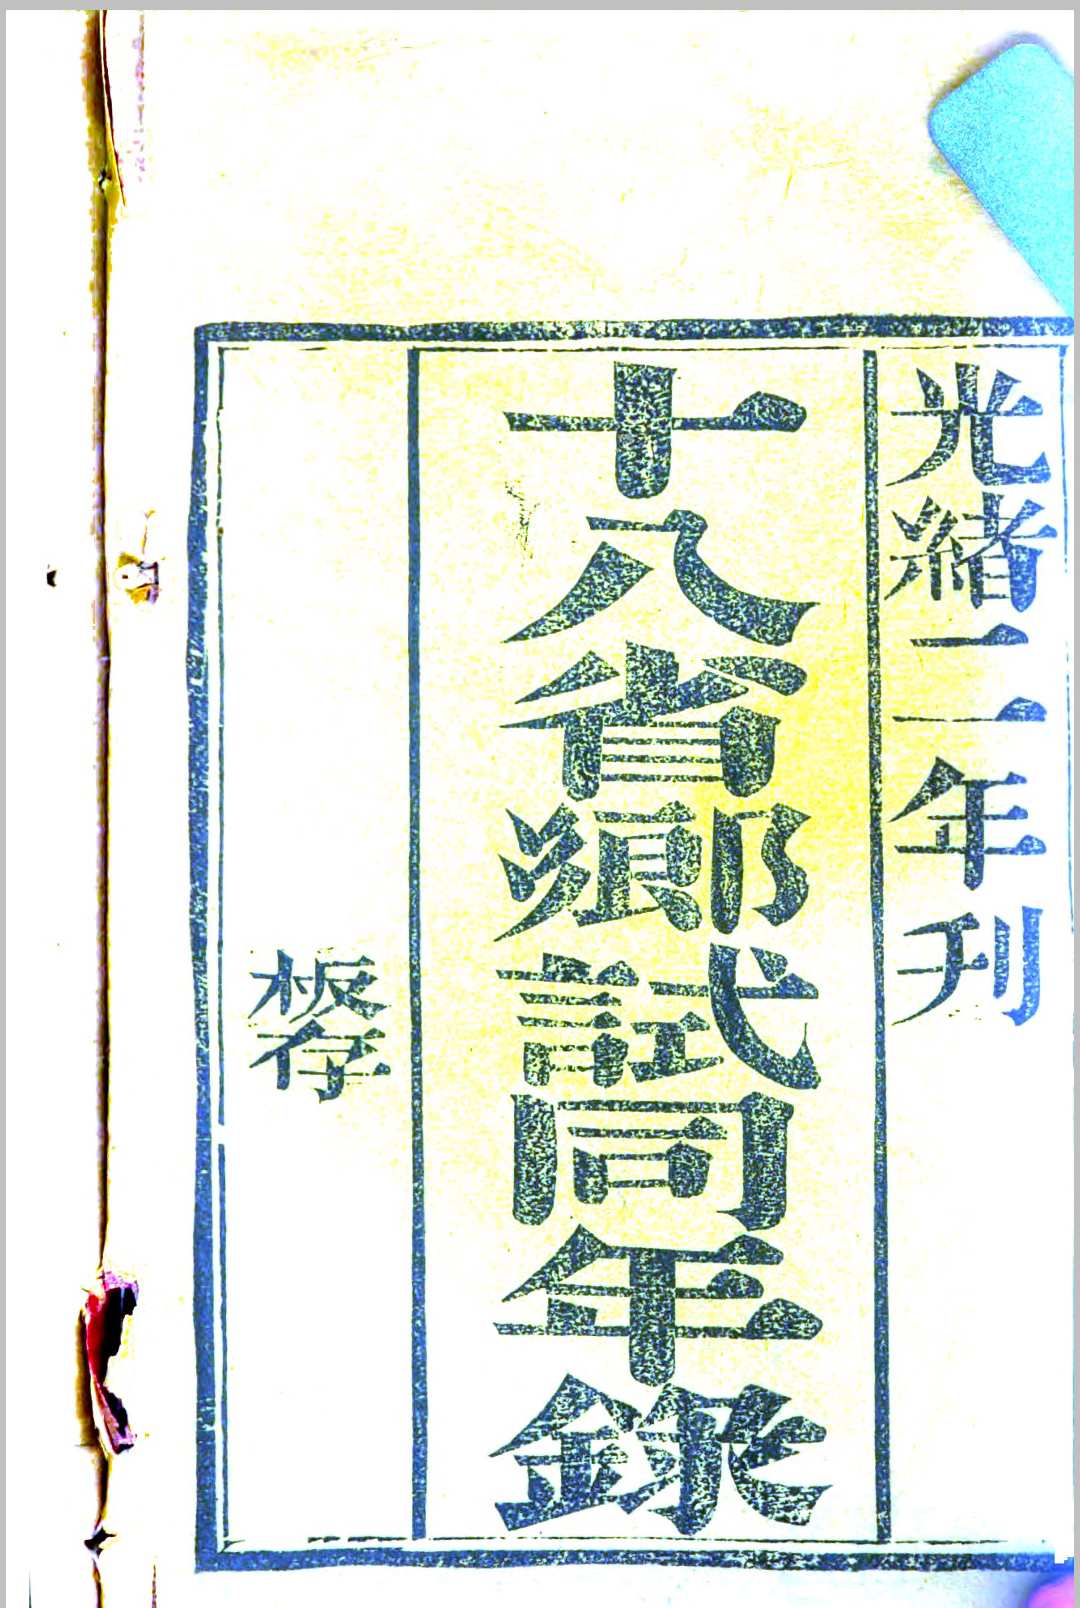 光緒二年刊
十八省鄉試同年錄
板存